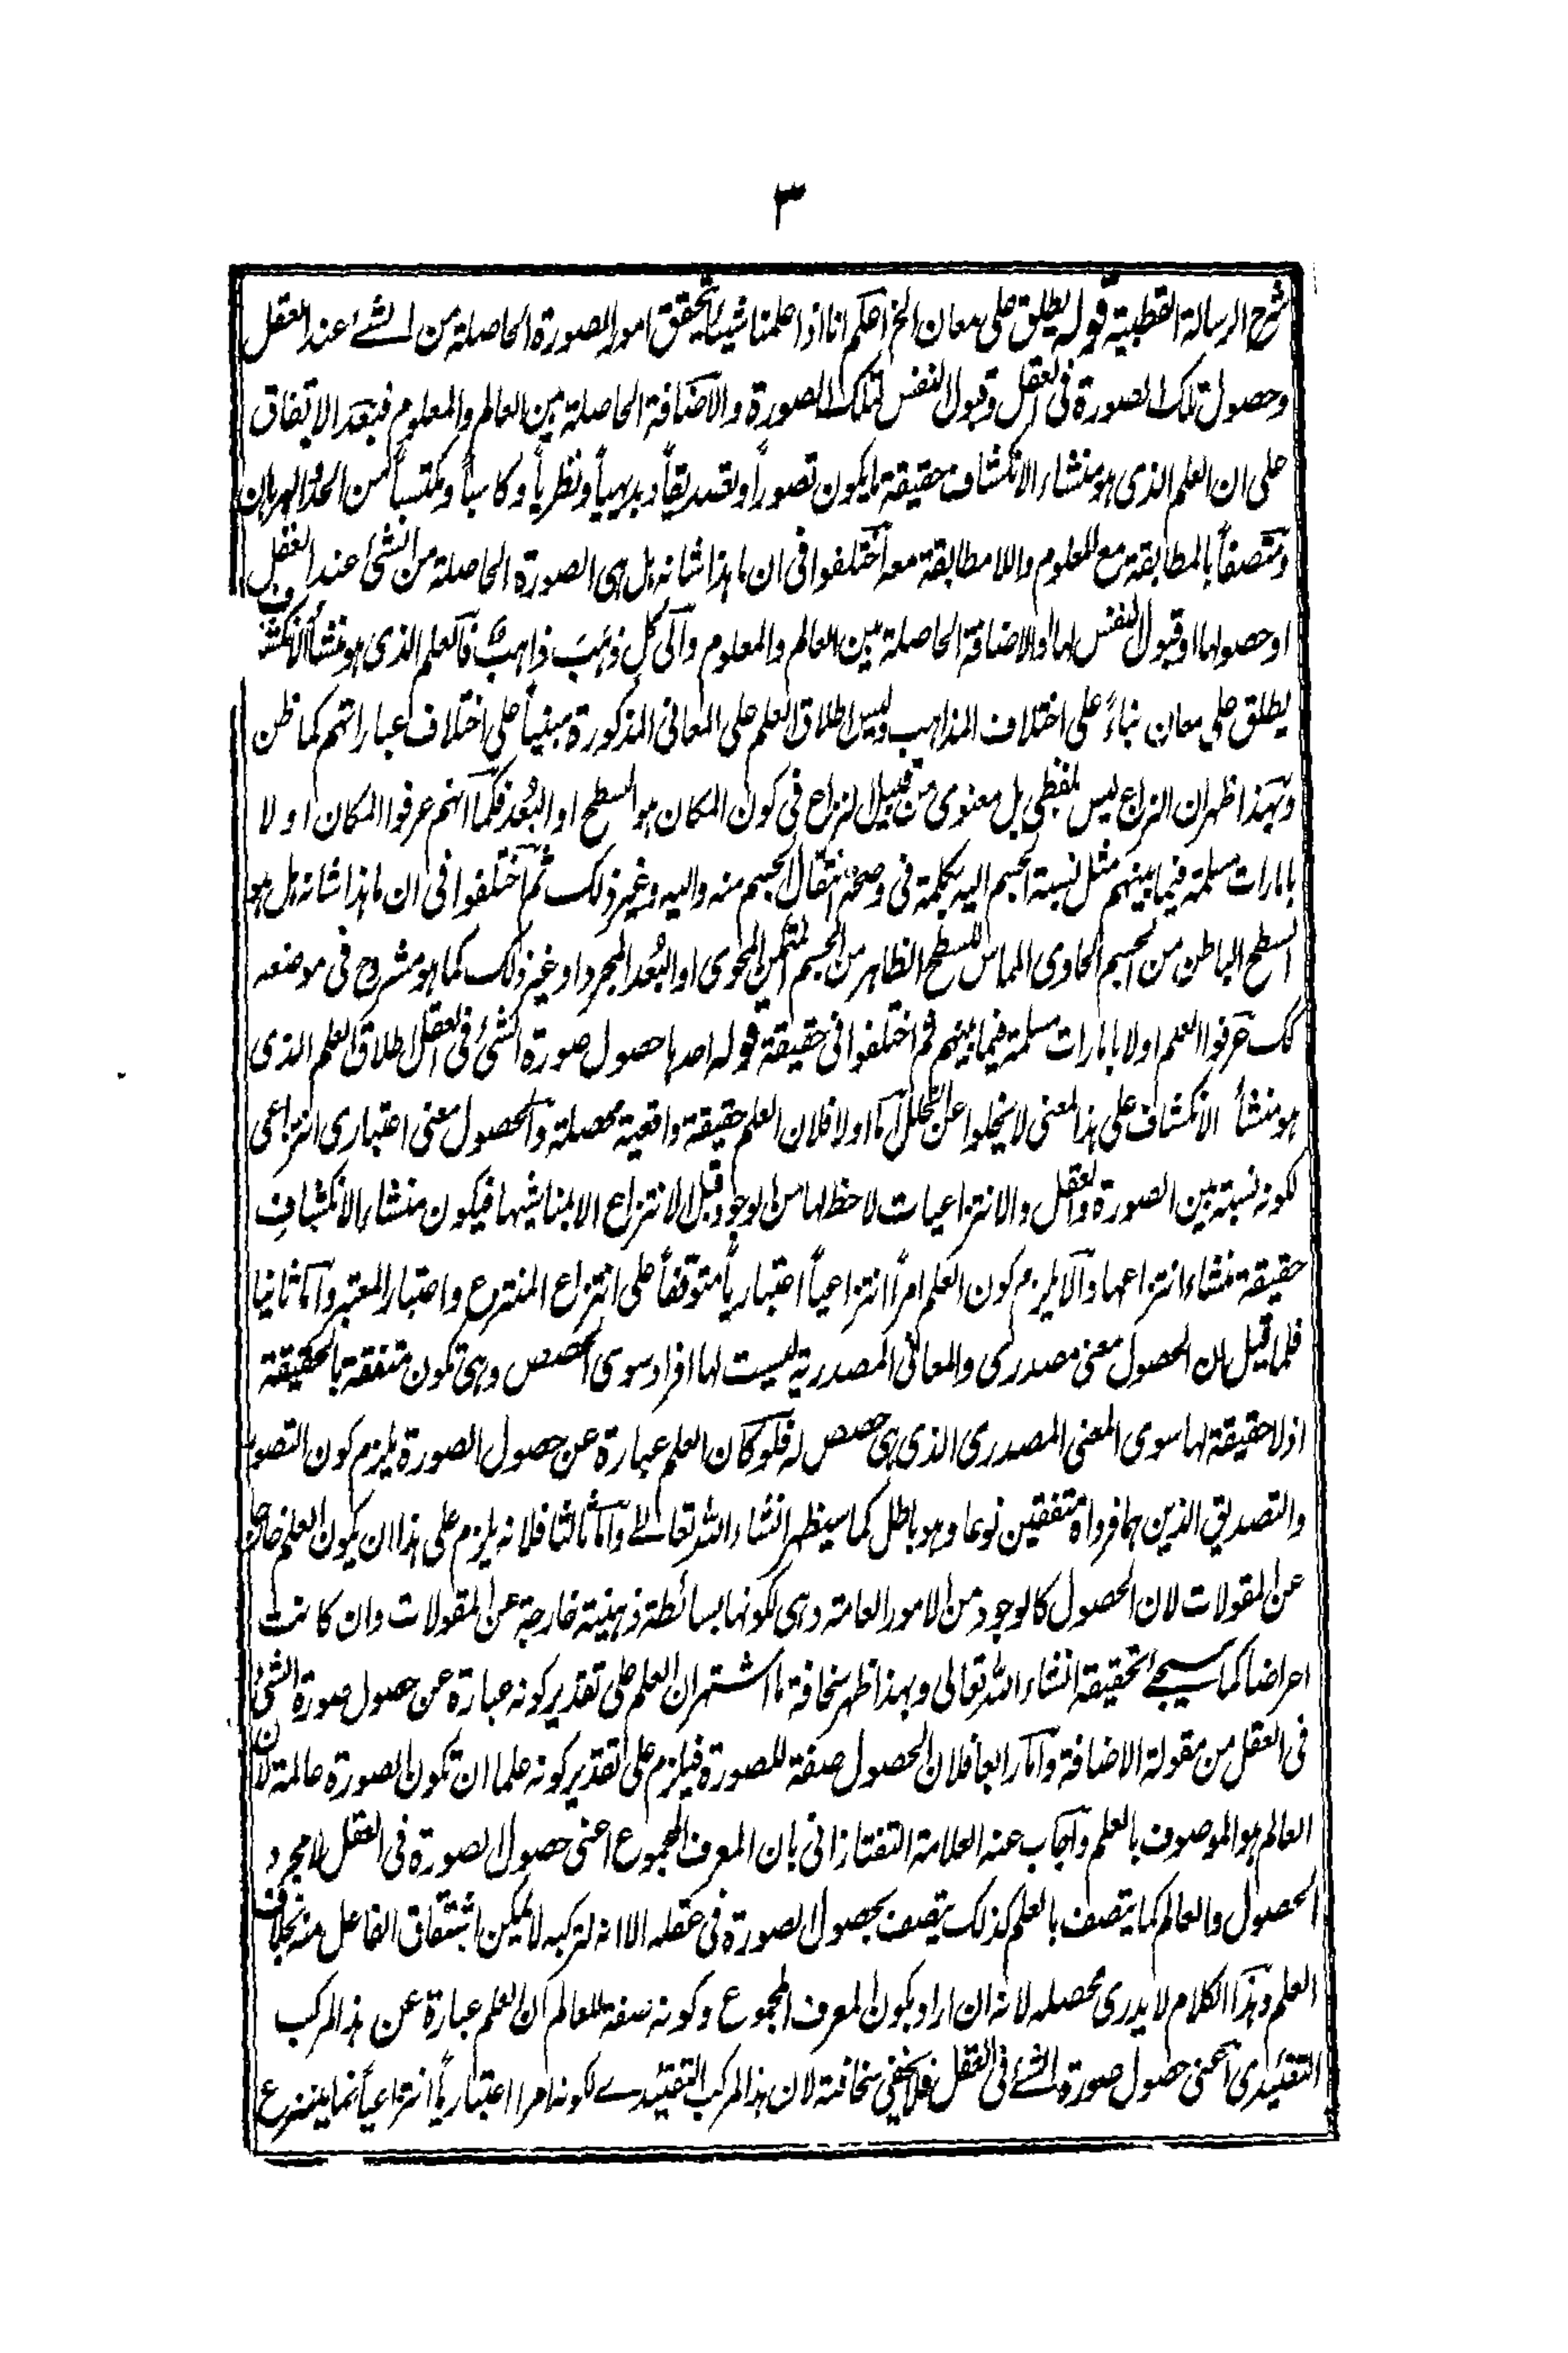 ٣
شرح الرسالة القطبية قوله يطلق على معان الخ اعلم انا اذا علمنا شيئا يتحقق امور الصورة الحاصلة من الشئ عند العقل
وحصول تلك الصورة فى العقل وقبول النفس لتلك الصورة والاضافة الحاصلة بين العالم والمعلوم فبعد الاتفاق
على ان العلم الذى هو منشاء الانكشاف حقيقة ما يكون تصوراً وتصديقاً وبديهياً ونظرياً وكاسباً ومكتسباً من الحد والبرهان
ومتصفاً بالمطابقة مع المعلوم واللامطابقة معه اختلفوا فى ان ما هذا شانه هل هى الصورة الحاصلة من الشئ عند العقل
او حصولها او قبول النفس لها او الاضافة الحاصلة بين العالم والمعلوم والى كل ذهب ذاهب فالعلم الذى هو منشأ الانكشاف
يطلق على معان بناءً على اختلاف المذاهب وليس اطلاق العلم على المعانى المذكورة مبنياً على اختلاف عباراتهم كما ظن
وبهذا ظهر ان النزاع ليس بلفظى بل معنوى من قبيل النزاع فى كون المكان هو السطح او البُعد فكما انهم عرفوا المكان اولا
بامارات مسلمة فيما بينهم مثل نسبة الجسم اليه بكلمة فى وصحة انتقال الجسم منه واليه وغير ذلك ثم اختلفوا فى ان ما هذا شانه هل هو
السطح الباطن من الجسم الحاوى المماس للسطح الظاهر من الجسم المتمكن المحوى او البُعد المجرد او غير ذلك كما هو مشروح فى موضعه
كك عرفوا العلم اولا بامارات مسلمة فيما بينهم ثم اختلفوا فى حقيقة قوله احدها حصول صورة الشئ فى العقل اطلاق العلم الذى
هو منشأ الانكشاف على هذا المعنى لا يخلوا عن الخلل اما اولا فلان العلم حقيقة واقعية محصلة والحصول معنى اعتبارى انتزاعى
لكونه نسبة بين الصورة والعقل والانتزاعيات لاحظ لها من الوجود قبل الانتزاع الا بمناشيها فيكون منشاء الانكشاف
حقيقة منشاء انتزاعها والا يلزم كون العلم امراً انتزاعياً اعتبارياً متوقفاً على انتزاع المنتزع واعتبار المعتبر واما ثانيا
فلما قيل ان الحصول معنى مصدرى والمعانى المصدرية ليست لها افراد سوى الحصص وهى تكون متفقة بالحقيقة
اذ لا حقيقة لها سوى المعنى المصدرى الذى هى حصص له فلو كان العلم عبارة عن حصول الصورة يلزم كون التصور
والتصديق الذين هما فرداه متفقين نوعا وهو باطل كما سيظهر انشاء الله تعالى واما ثالثا فلانه يلزم على هذا ان يكون العلم خارجا
عن المقولات لان الحصول كالوجود من الامور العامة وهى لكونها بسائطة ذهنية خارجة عن المقولات وان كانت
اعراضا كما سيجئ تحقيقه انشاء الله تعالى وبهذا ظهر سخافة ما اشتهر ان العلم على تقدير كونه عبارة عن حصول صورة الشئ
فى العقل من مقولة الاضافة واما رابعا فلان الحصول صفة للصورة فيلزم على تقدير كونه علما ان تكون الصورة عالمة لان
العالم هو الموصوف بالعلم واجاب عنه العلامة التفتازانى بان المعرف المجموع اعنى حصول الصورة فى العقل لا مجرد
الحصول والعالم كما يتصف بالعلم كذلك يتصف بحصول الصورة فى عقله الا انه لتركبه لا يمكن اشتقاق الفاعل منه بخلاف
العلم وهذا الكلام لا يدرى محصله لانه ان اراد بكون المعرف المجموع وكونه صفة للعالم ان العلم عبارة عن هذا المركب
التقئيدى اعنى حصول صورة الشئ فى العقل فلا يخفى سخافته لان هذا المركب التقئيدى لكونه امرا اعتبارياً انتزاعياً انما ينتزع